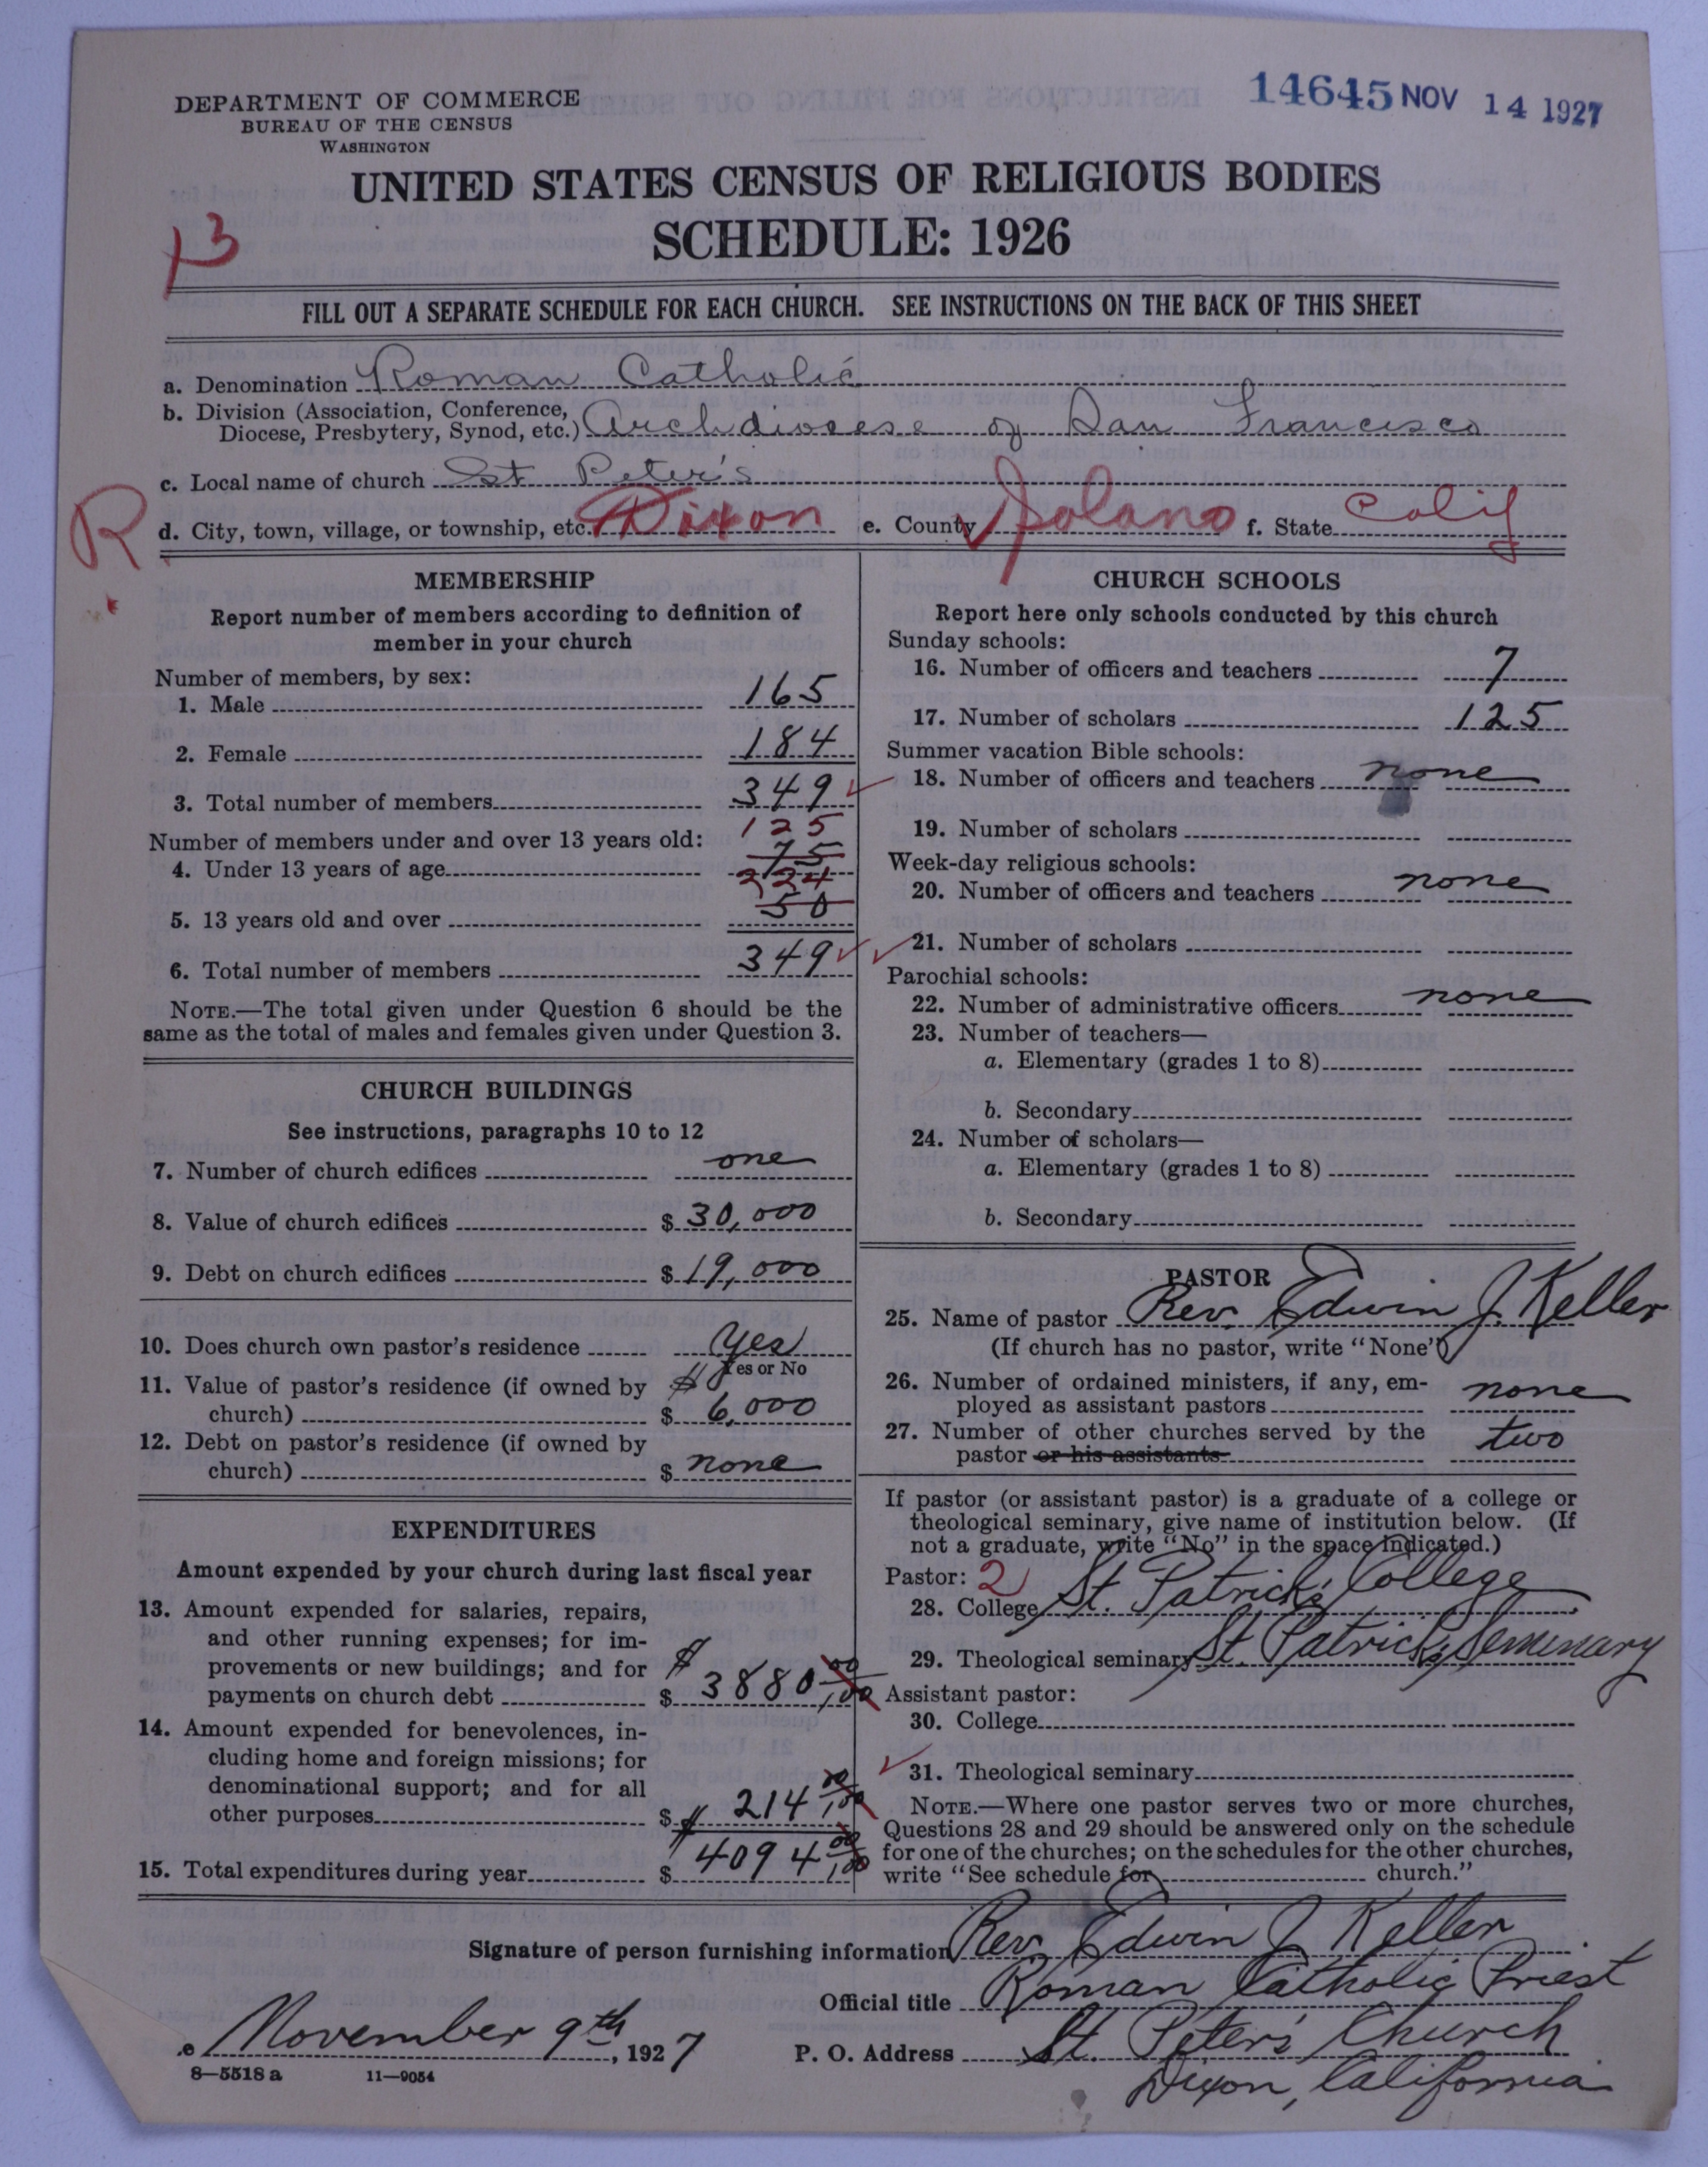 DEPARTMENT OF COMMERCE
BUREAU OF THE CENSUS
WASHINGTON
14645 NOV 14 1927
UNITED STATES CENSUS OF RELIGIOUS BODIES
SCHEDULE: 1926
13
FILL OUT A SEPARATE SCHEDULE FOR EACH CHURCH. SEE INSTRUCTIONS ON THE BACK OF THIS SHEET
a. Denomination Roman Catholic
b. Division (Association, Conference,
Diocese, Presbytery, Synod, etc.) Archdiocese of San Francisco
c. Local name of church St Peter's
R
d. City, town, village, or township, etc. Dixon e. County Solano f. State Calif
MEMBERSHIP
Report number of members according to definition of
member in your church
Number of members, by sex:
1. Male 165
2. Female 184
3. Total number of members 349
Number of members under and over 13 years old:
125
4. Under 13 years of age 75
224
5. 13 years old and over 50
6. Total number of members 349
NOTE.—The total given under Question 6 should be the
same as the total of males and females given under Question 3.
CHURCH BUILDINGS
See instructions, paragraphs 10 to 12
7. Number of church edifices one
8. Value of church edifices $ 30,000
9. Debt on church edifices $ 19,000
10. Does church own pastor's residence yes
Yes or No
11. Value of pastor's residence (if owned by
church) $ 6,000
12. Debt on pastor's residence (if owned by
church) $ none
EXPENDITURES
Amount expended by your church during last fiscal year
13. Amount expended for salaries, repairs,
and other running expenses; for im-
provements or new buildings; and for
payments on church debt $ $ 3880 00/100
14. Amount expended for benevolences, in-
cluding home and foreign missions; for
denominational support; and for all
other purposes $ $ 214 00/100
15. Total expenditures during year $ 4094 00/100
CHURCH SCHOOLS
Report here only schools conducted by this church
Sunday schools:
16. Number of officers and teachers 7
17. Number of scholars 125
Summer vacation Bible schools:
18. Number of officers and teachers none
19. Number of scholars
Week-day religious schools:
20. Number of officers and teachers none
21. Number of scholars
Parochial schools:
22. Number of administrative officers none
23. Number of teachers—
a. Elementary (grades 1 to 8)
b. Secondary
24. Number of scholars—
a. Elementary (grades 1 to 8)
b. Secondary
PASTOR
25. Name of pastor Rev. Edwin J. Keller
(If church has no pastor, write "None")
26. Number of ordained ministers, if any, em-
ployed as assistant pastors none
27. Number of other churches served by the
pastor or his assistants two
If pastor (or assistant pastor) is a graduate of a college or
theological seminary, give name of institution below. (If
not a graduate, write "No" in the space indicated.)
Pastor: 2
28. College St. Patrick's College
29. Theological seminary St. Patrick's Seminary
Assistant pastor:
30. College
31. Theological seminary
NOTE.—Where one pastor serves two or more churches,
Questions 28 and 29 should be answered only on the schedule
for one of the churches; on the schedules for the other churches,
write "See schedule for church."
Signature of person furnishing information Rev. Edwin J Keller
Official title Roman Catholic Priest
e November 9th, 1927 P. O. Address St. Peter's Church
Dixon, California
8—5518 a 11—9054